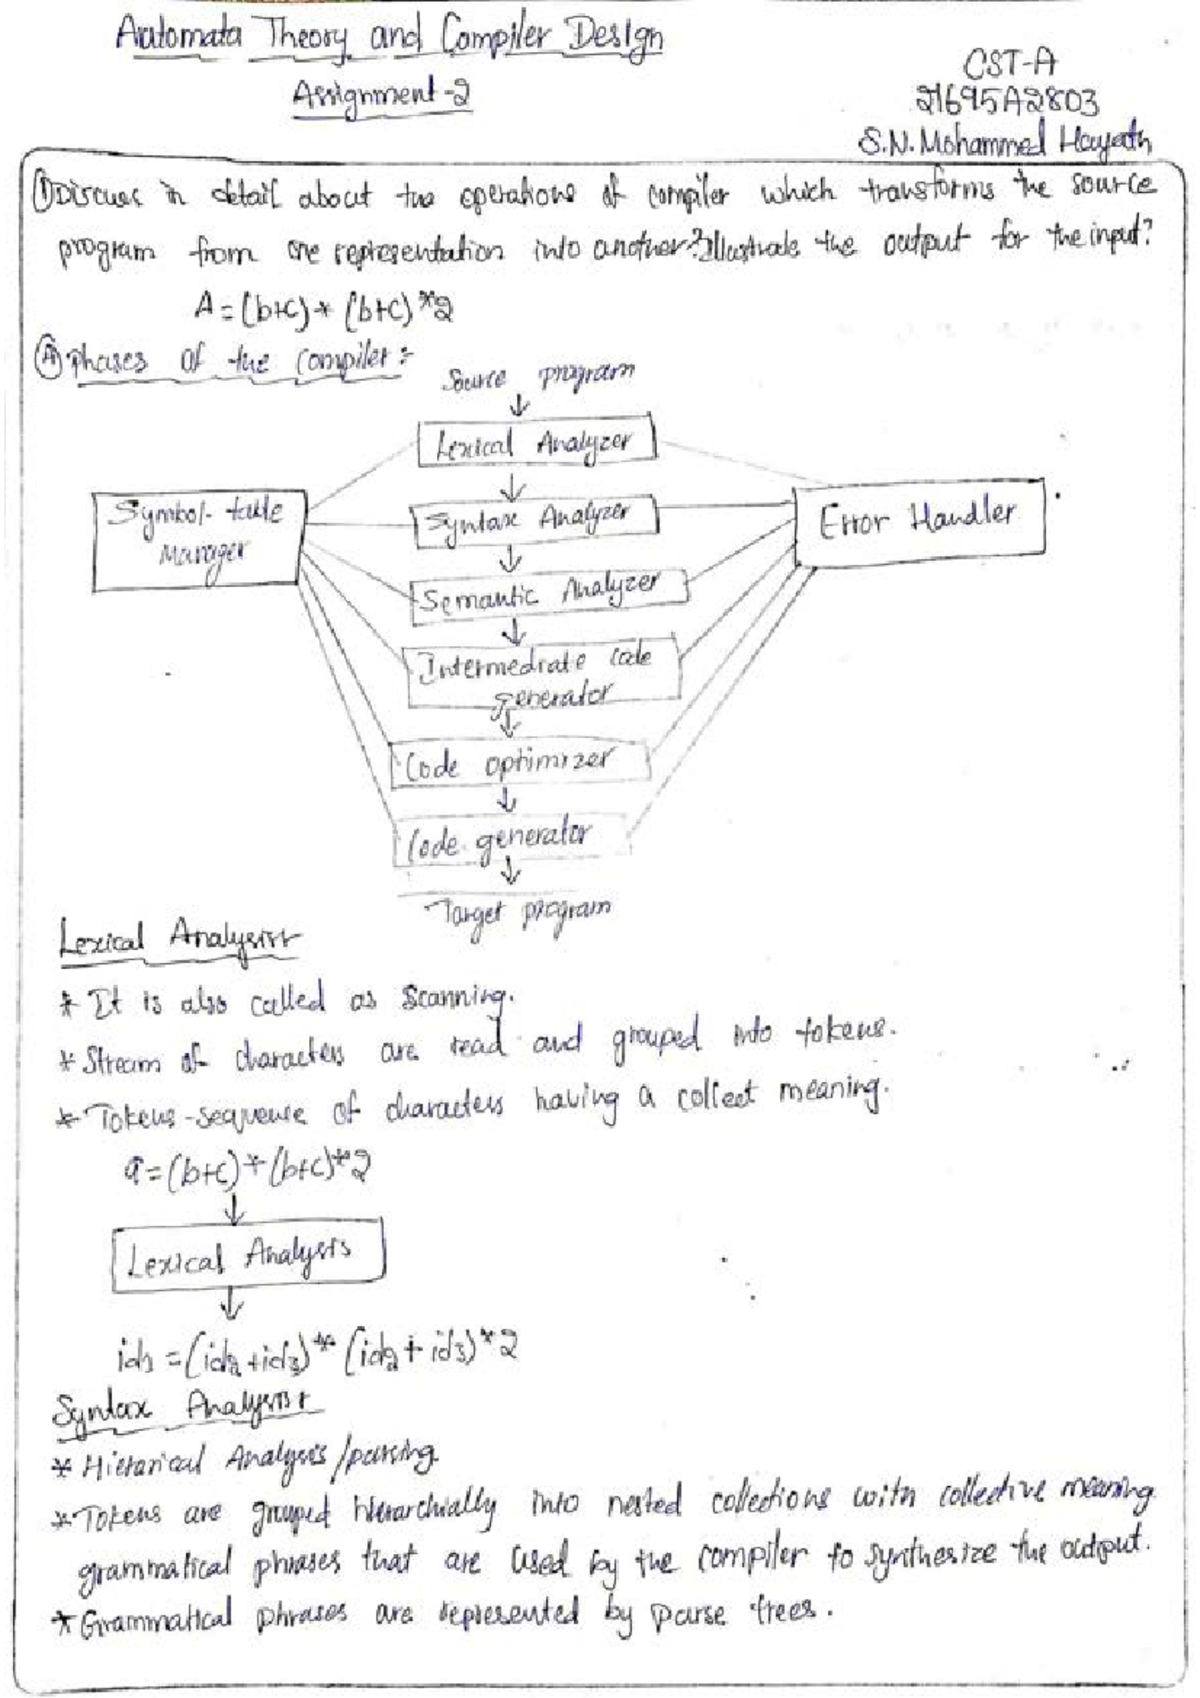 Automata Theory and Compiler Design
Assignment-2
CST-A
21695A2803
S.N. Mohammed Hayath
① Discuss in detail about the operations of compiler which transforms the source
program from one representation into another? Illustrate the output for the input?
A = (b+c) * (b+c) * 2
Ⓐ Phases of the compiler:-
Source program
Lexical Analyzer
Symbol-table
manager
Syntax Analyzer
Error Handler
Semantic Analyzer
Intermediate code
generator
Code optimizer
Code generator
Target program
Lexical Analysis:-
* It is also called as Scanning.
* Stream of characters are read and grouped into tokens.
* Tokens - sequence of characters having a collect meaning.
a = (b+c) * (b+c) * 2
Lexical Analysis
id1 = (id2 + id3) * (id2 + id3) * 2
Syntax Analysis:-
* Hierarical Analysis / parsing
* Tokens are grouped hierarchially into nested collections with collective meaning
grammatical phrases that are used by the compiler to synthesize the output.
* Grammatical phrases are represented by parse trees.